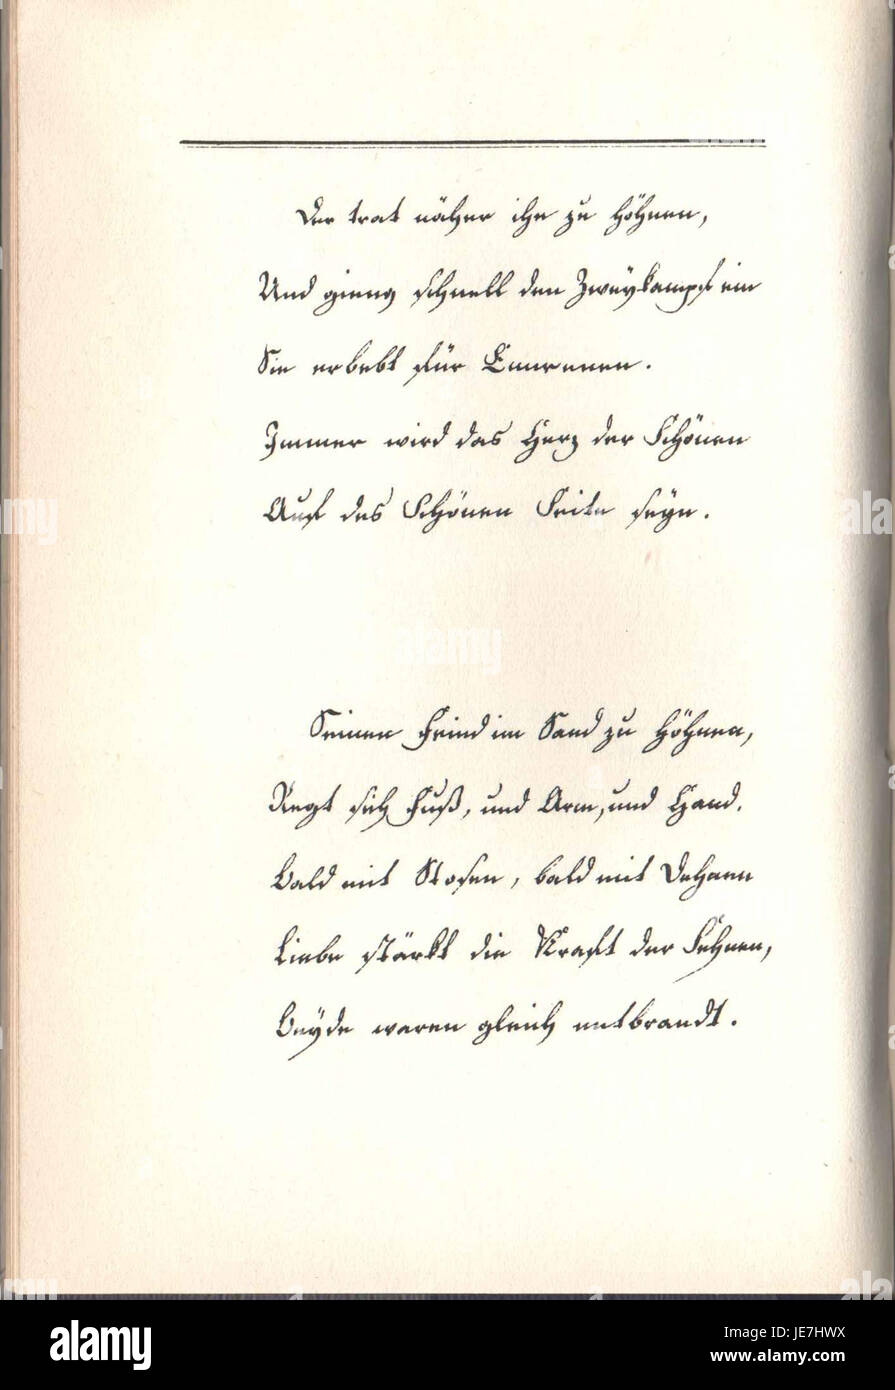 Der trat näher ihn zu höhnen,
Und gieng schnell den Zweykampf ein
Sie erbebt für
Immer wird das Herz der Schönen
Auf des Schönen Seite seyn.
Seinen Feind im Sand zu höhnen,
Regt sich Fuß, und Arm, und Hand.
Bald mit Stosen, bald mit Dehnen
Liebe stärkt die Kraft der Sehnen,
Beyde waren gleich entbrandt.
alamy
Image ID: JE7HWX
www.alamy.com